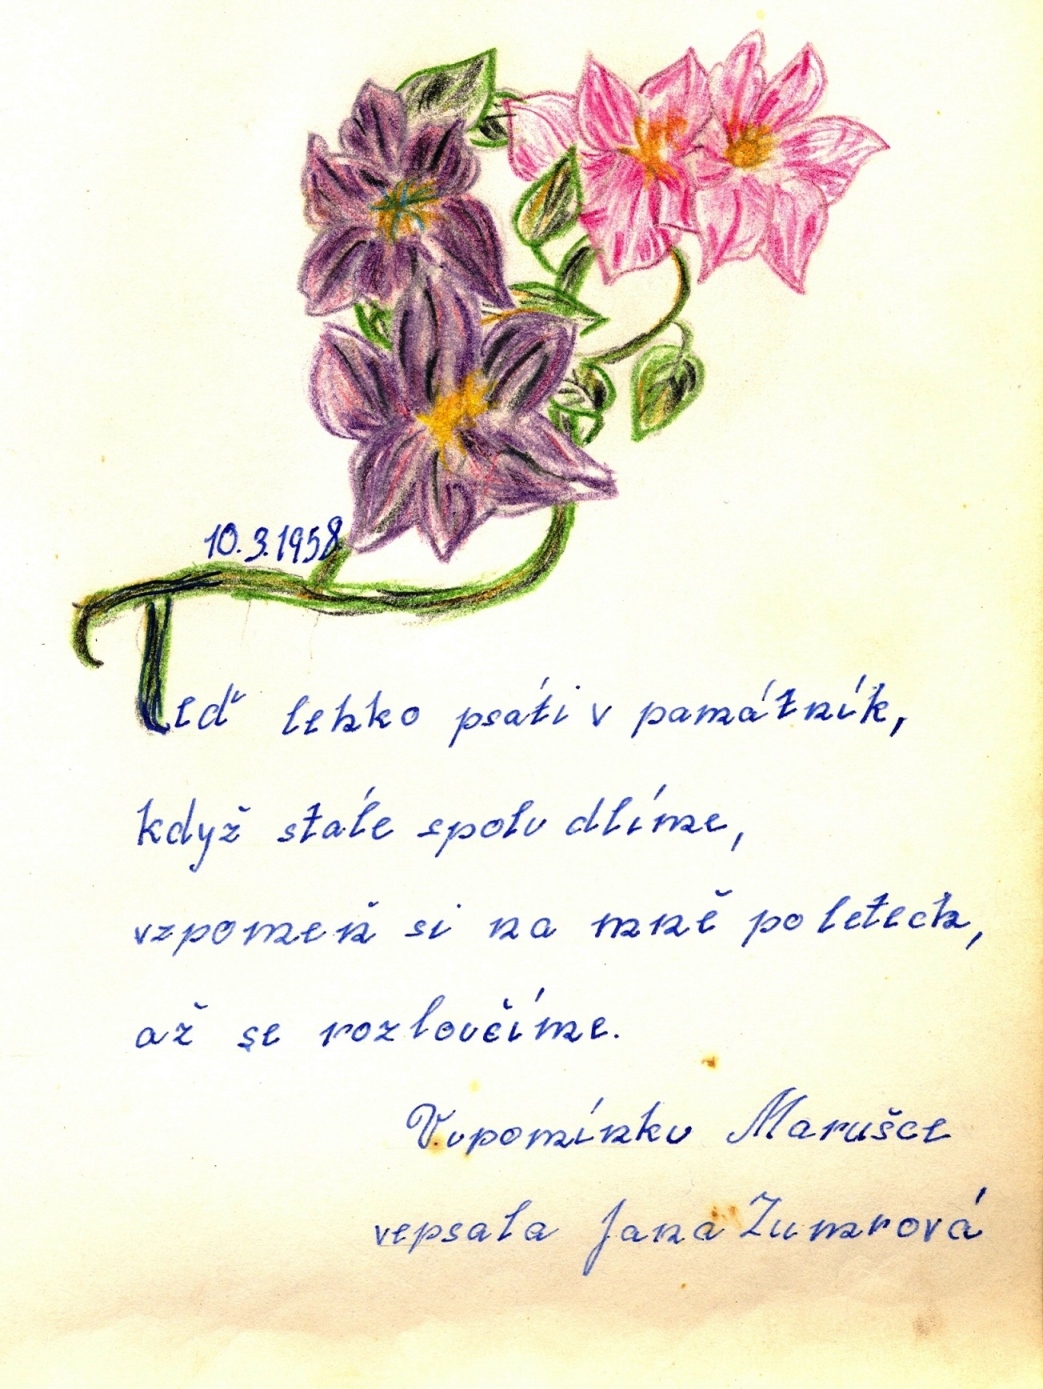 10.3.1958
Teď lehko psáti v památník,
když stále spolu dlíme,
vzpomeň si na mně po letech,
až se rozloučíme.
Vupomínku Marušce
vepsala Jana Zumrová